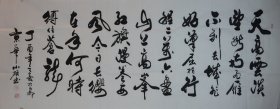 天高雲淡
望断南飛雁
不到長城
非好漢屈指行
程二万六盤
山上高峰
紅旗漫卷西
風今日長纓
在手何時
縛住蒼龍